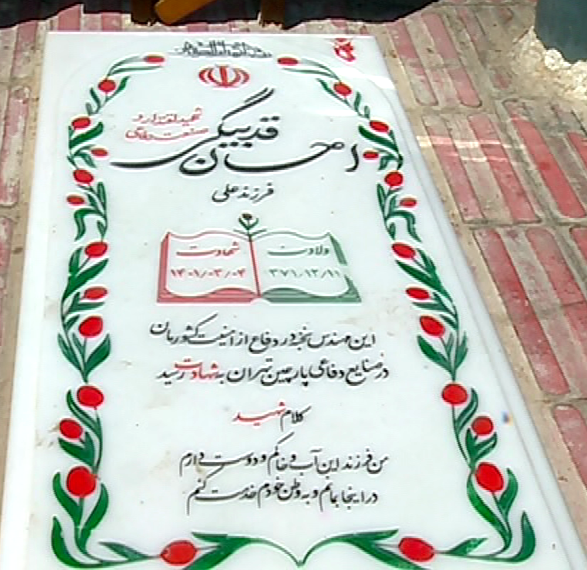 شهید اقتدار و
صنعت دفاعی
احسان قدبیگی
فرزند علی
ولادت
۳۷۱/۱۲/۱۱
شهادت
۱۴۰۱/۰۳/۰۴
این مهندس نخبه در دفاع از امنیت کشورمان
در صنایع دفاعی پارچین تهران به شهادت رسید
کلام شهید
من فرزند این آب و خاکم و دوست دارم
در اینجا بمانم و به وطن خودم خدمت کنم